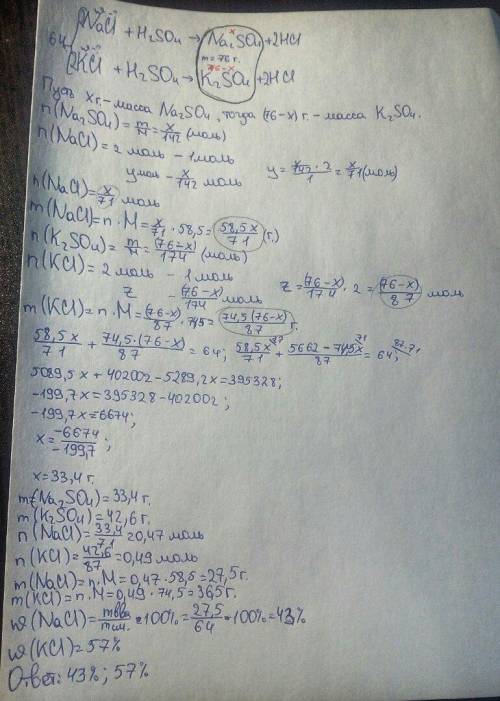 2NaCl + H₂SO₄ → Na₂SO₄ + 2HCl
64 m = 76 г.
2KCl + H₂SO₄ → K₂SO₄ + 2HCl
x
76-x
Пусть x г. - масса Na₂SO₄, тогда (76-x) г. - масса K₂SO₄.
n(Na₂SO₄) = m/M = x/142 (моль)
n(NaCl) = 2 моль - 1 моль
y моль - x/142 моль y = x/142 · 2 / 1 = x/71 (моль)
n(NaCl) = x/71 моль
m(NaCl) = n · M = x/71 · 58,5 = 58,5x/71 (г.)
n(K₂SO₄) = m/M = (76-x)/174 (моль)
n(KCl) = 2 моль - 1 моль
z - (76-x)/174 моль z = (76-x)/174 · 2 = (76-x)/87 моль
m(KCl) = n · M = (76-x)/87 · 74,5 = 74,5(76-x)/87 г.
58,5x/71 + 74,5·(76-x)/87 = 64; 58,5x/71 + 5662-74,5x/87 = 64;
87 71 87·71
5089,5x + 402002 - 5289,2x = 395328;
-199,7x = 395328 - 402002;
-199,7x = 6674;
x = -6674/-199,7;
x = 33,4 г.
m(Na₂SO₄) = 33,4 г.
m(K₂SO₄) = 42,6 г.
n(NaCl) = 33,4/71 = 0,47 моль
n(KCl) = 42,6/87 = 0,49 моль
m(NaCl) = n · M = 0,47 · 58,5 = 27,5 г.
m(KCl) = n · M = 0,49 · 74,5 = 36,5 г.
ω(NaCl) = mв-ва/mсм. · 100% = 27,5/64 · 100% = 43%
ω(KCl) = 57%
Ответ: 43%; 57%